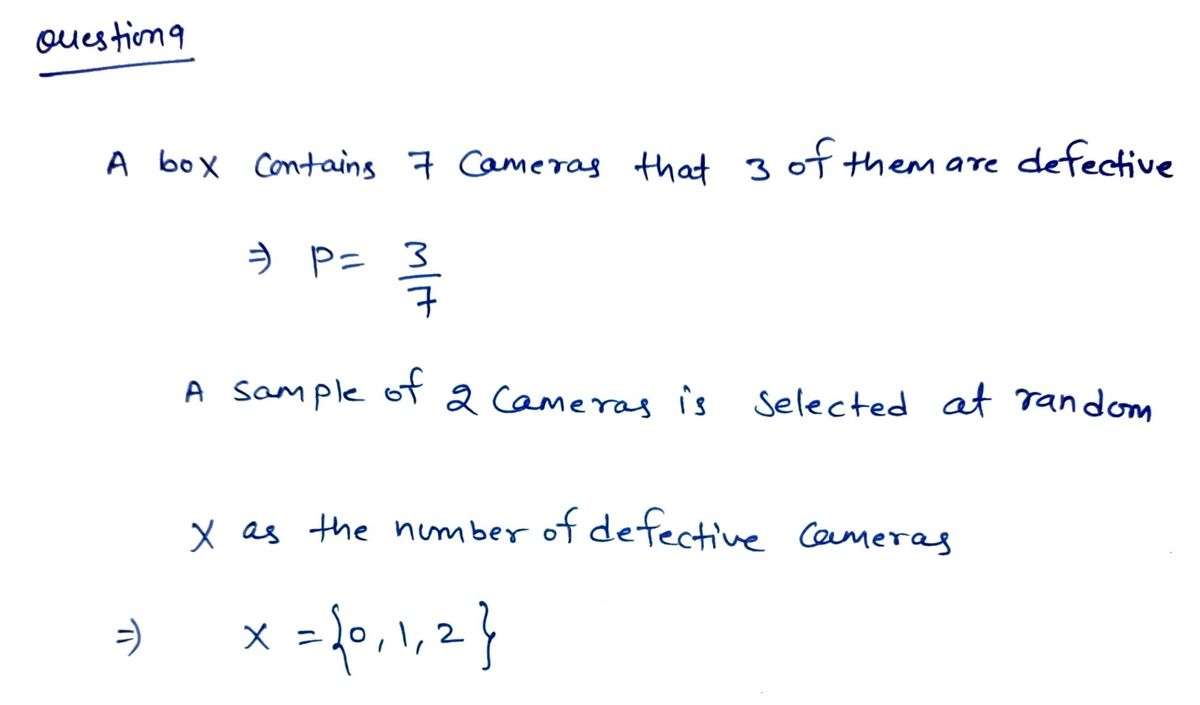 Question 9
A box contains 7 cameras that 3 of them are defective
⇒ P = 3/7
A sample of 2 cameras is selected at random
X as the number of defective cameras
⇒ X = {0, 1, 2}